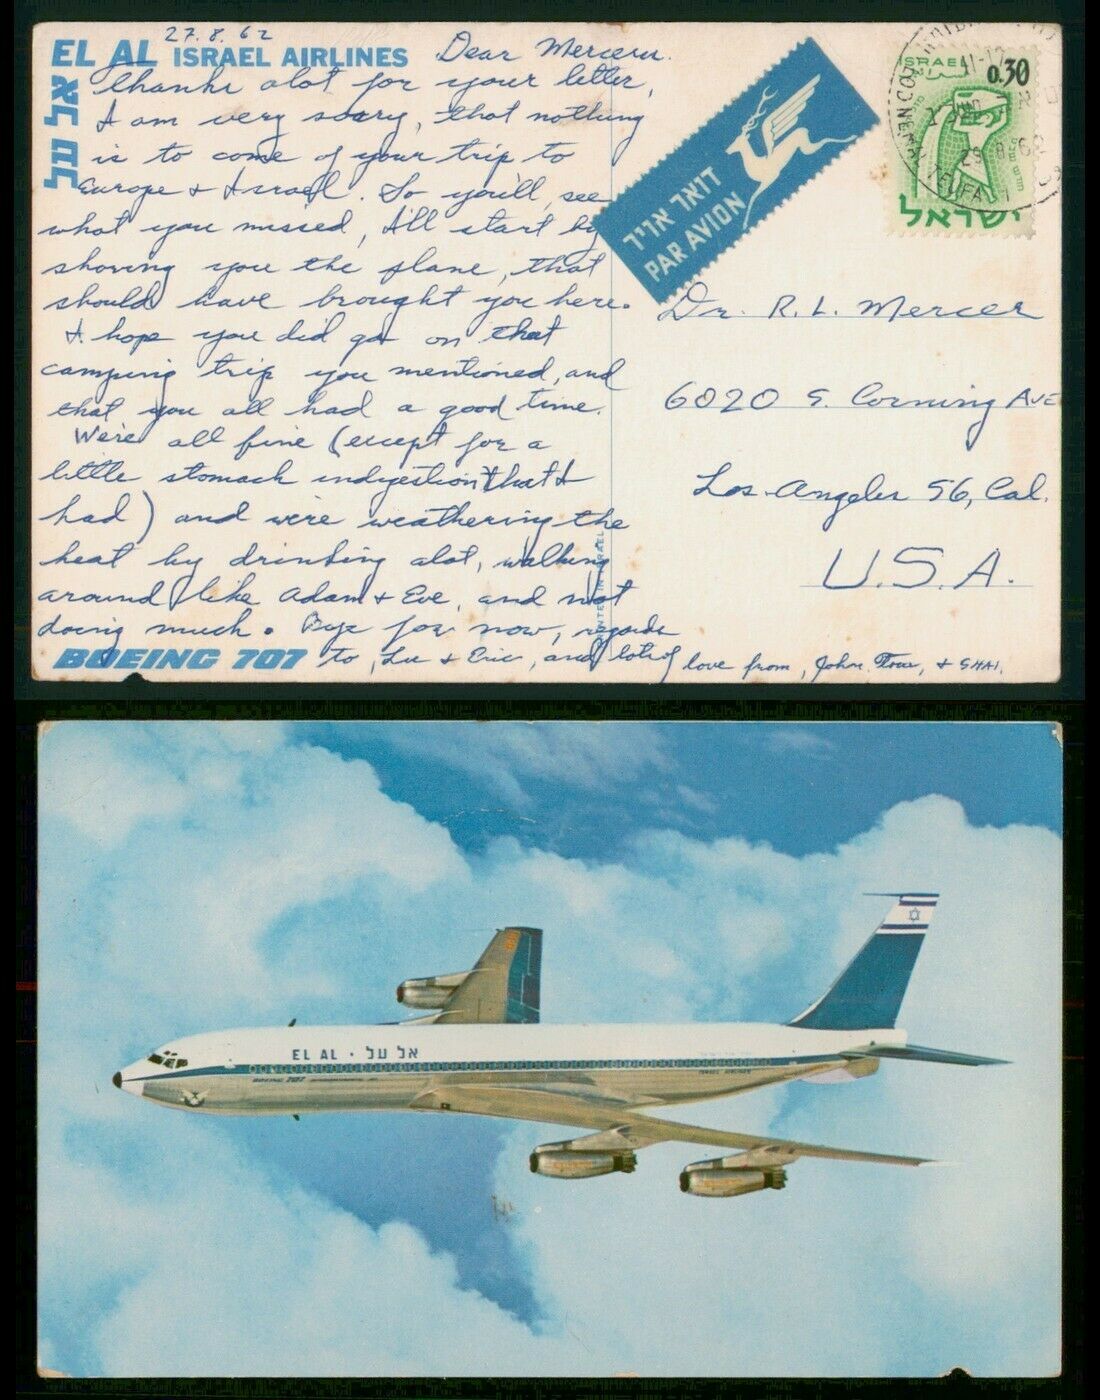 27.8.62
EL AL ISRAEL AIRLINES
אל על
Dear Mercers.
Thanks alot for your letter,
I am very sorry, that nothing
is to come of your trip to
Europe + Israel. So you'll see
what you missed, I'll start by
showing you the plane, that
should have brought you here.
I hope you did go on that
camping trip you mentioned, and
that you all had a good time.
We're all fine (except for a
little stomach indigestion that I
had) and we're weathering the
heat by drinking alot, walking
around like Adam + Eve, and not
doing much. Bye for now, regards
BOEING 707 to, Lee + Eric, and lots of love from, John, + SHAI.
PRINTED IN ISRAEL
דואר אויר
PAR AVION
ISRAEL
0.30
ישראל
Dr. R. L. Mercer
6020 S. Corning AVE
Los Angeles 56, Cal.
U.S.A.
EL AL · אל על
BOEING 707